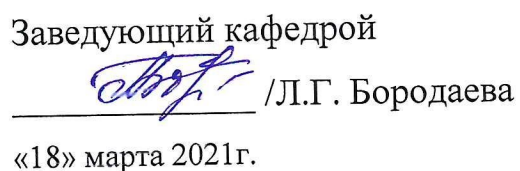 Заведующий кафедрой
/Л.Г. Бородаева
«18» марта 2021г.